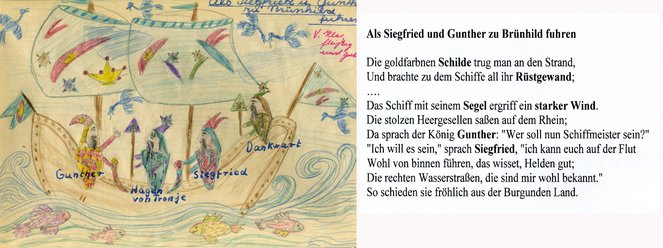 Als Siegfried u. Gunther
zu Brünhild
fuhren
fleißig
und gut
Dankwart
Gunther
Siegfried
Hagen
von Tronje
Als Siegfried und Gunther zu Brünhild fuhren
Die goldfarbnen Schilde trug man an den Strand,
Und brachte zu dem Schiffe all ihr Rüstgewand;
....
Das Schiff mit seinem Segel ergriff ein starker Wind.
Die stolzen Heergesellen saßen auf dem Rhein;
Da sprach der König Gunther: "Wer soll nun Schiffmeister sein?"
"Ich will es sein," sprach Siegfried, "ich kann euch auf der Flut
Wohl von binnen führen, das wisset, Helden gut;
Die rechten Wasserstraßen, die sind mir wohl bekannt."
So schieden sie fröhlich aus der Burgunden Land.